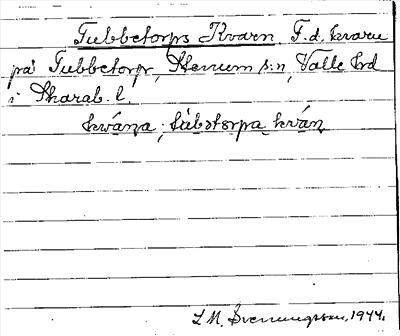 Tubbetorps Kvarn F.d. kvarn
på Tubbetorp, Stenum s:n, Valle hd
i Skarab. l.
kwána; tùbətorpa kván
L M. Svenungsson, 1944.